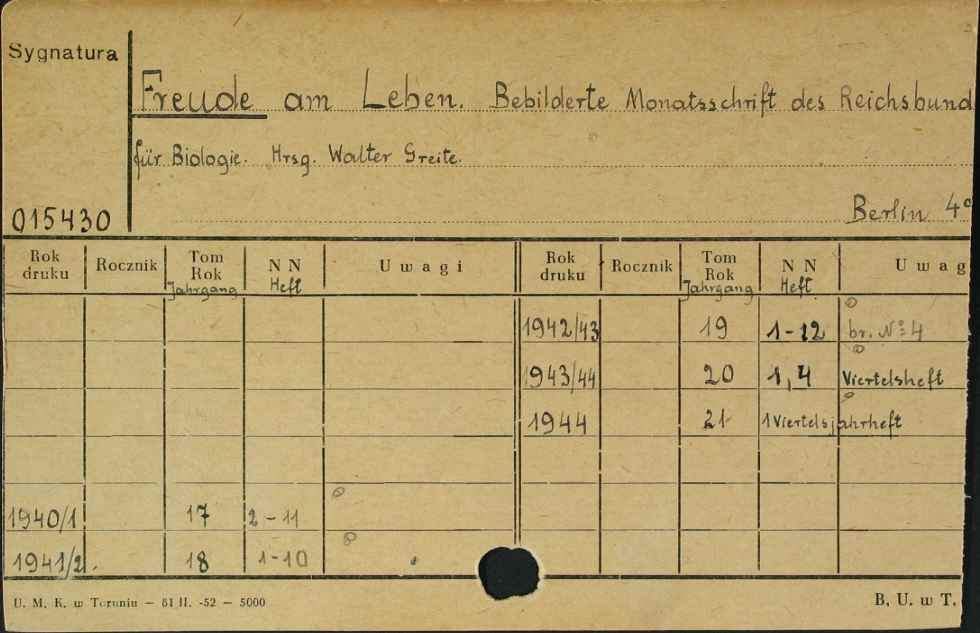 Sygnatura
Freude am Leben. Bebilderte Monatsschrift des Reichsbund
für Biologie. Hrsg. Walter Greite.
015430 Berlin 4°
Rok druku Rocznik Tom Rok Jahrgang N N Heft Uwagi Rok druku Rocznik Tom Rok Jahrgang N N Heft Uwag
1942/43 19 1-12 br. № 4
1943/44 20 1,4 Viertelsheft
1944 21 1 Viertelsjahrheft
1940/1 17 2-11
1941/2. 18 1-10
U. M. K. w Toruniu — 51 II. -52 — 5000 B. U. w T.